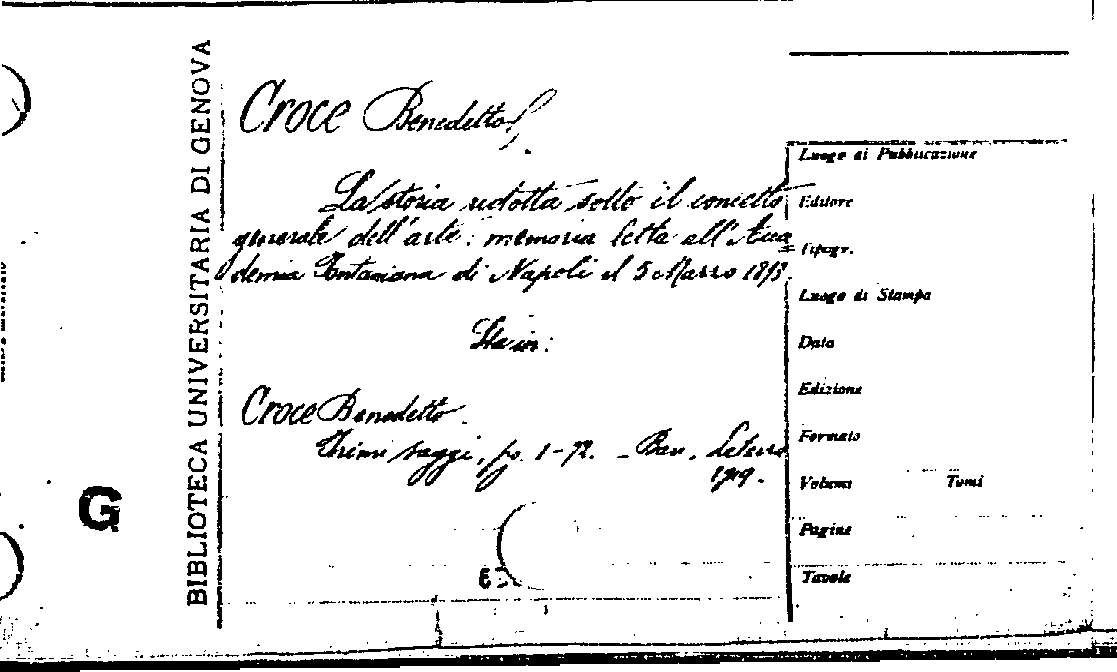 BIBLIOTECA UNIVERSITARIA DI GENOVA
G
Croce Benedetto
La storia ridotta sotto il concetto
generale dell'arte: memoria letta all'Acca
demia Pontaniana di Napoli il 5 Marzo
Sta in:
Croce Benedetto.
Primi saggi, pp. 1-72. - Bari, Laterza
1919.
Luogo di Pubblicazione
Editore
Tipogr.
Luogo di Stampa
Data
Edizione
Formato
Volume Tomi
Pagine
Tavole